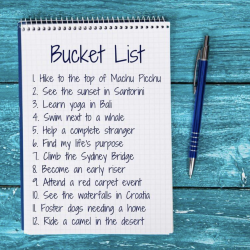 Bucket List
1. Hike to the top of Machu Picchu
2. See the sunset in Santorini
3. Learn yoga in Bali
4. Swim next to a whale
5. Help a complete stranger
6. Find my life's purpose
7. Climb the Sydney Bridge
8. Become an early riser
9. Attend a red carpet event
10. See the waterfalls in Croatia
11. Foster dogs needing a home
12. Ride a camel in the desert